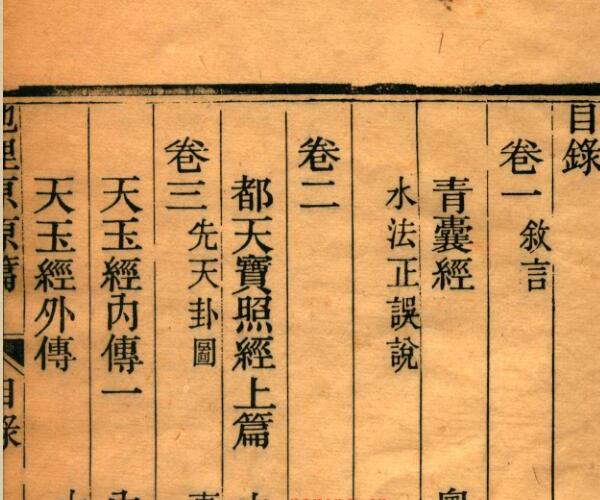 目錄
卷一 敘言
青囊經
水法正誤說
卷二
都天寶照經上篇
卷三 先天卦圖
天玉經內傳一
天玉經外傳
地理原 目錄